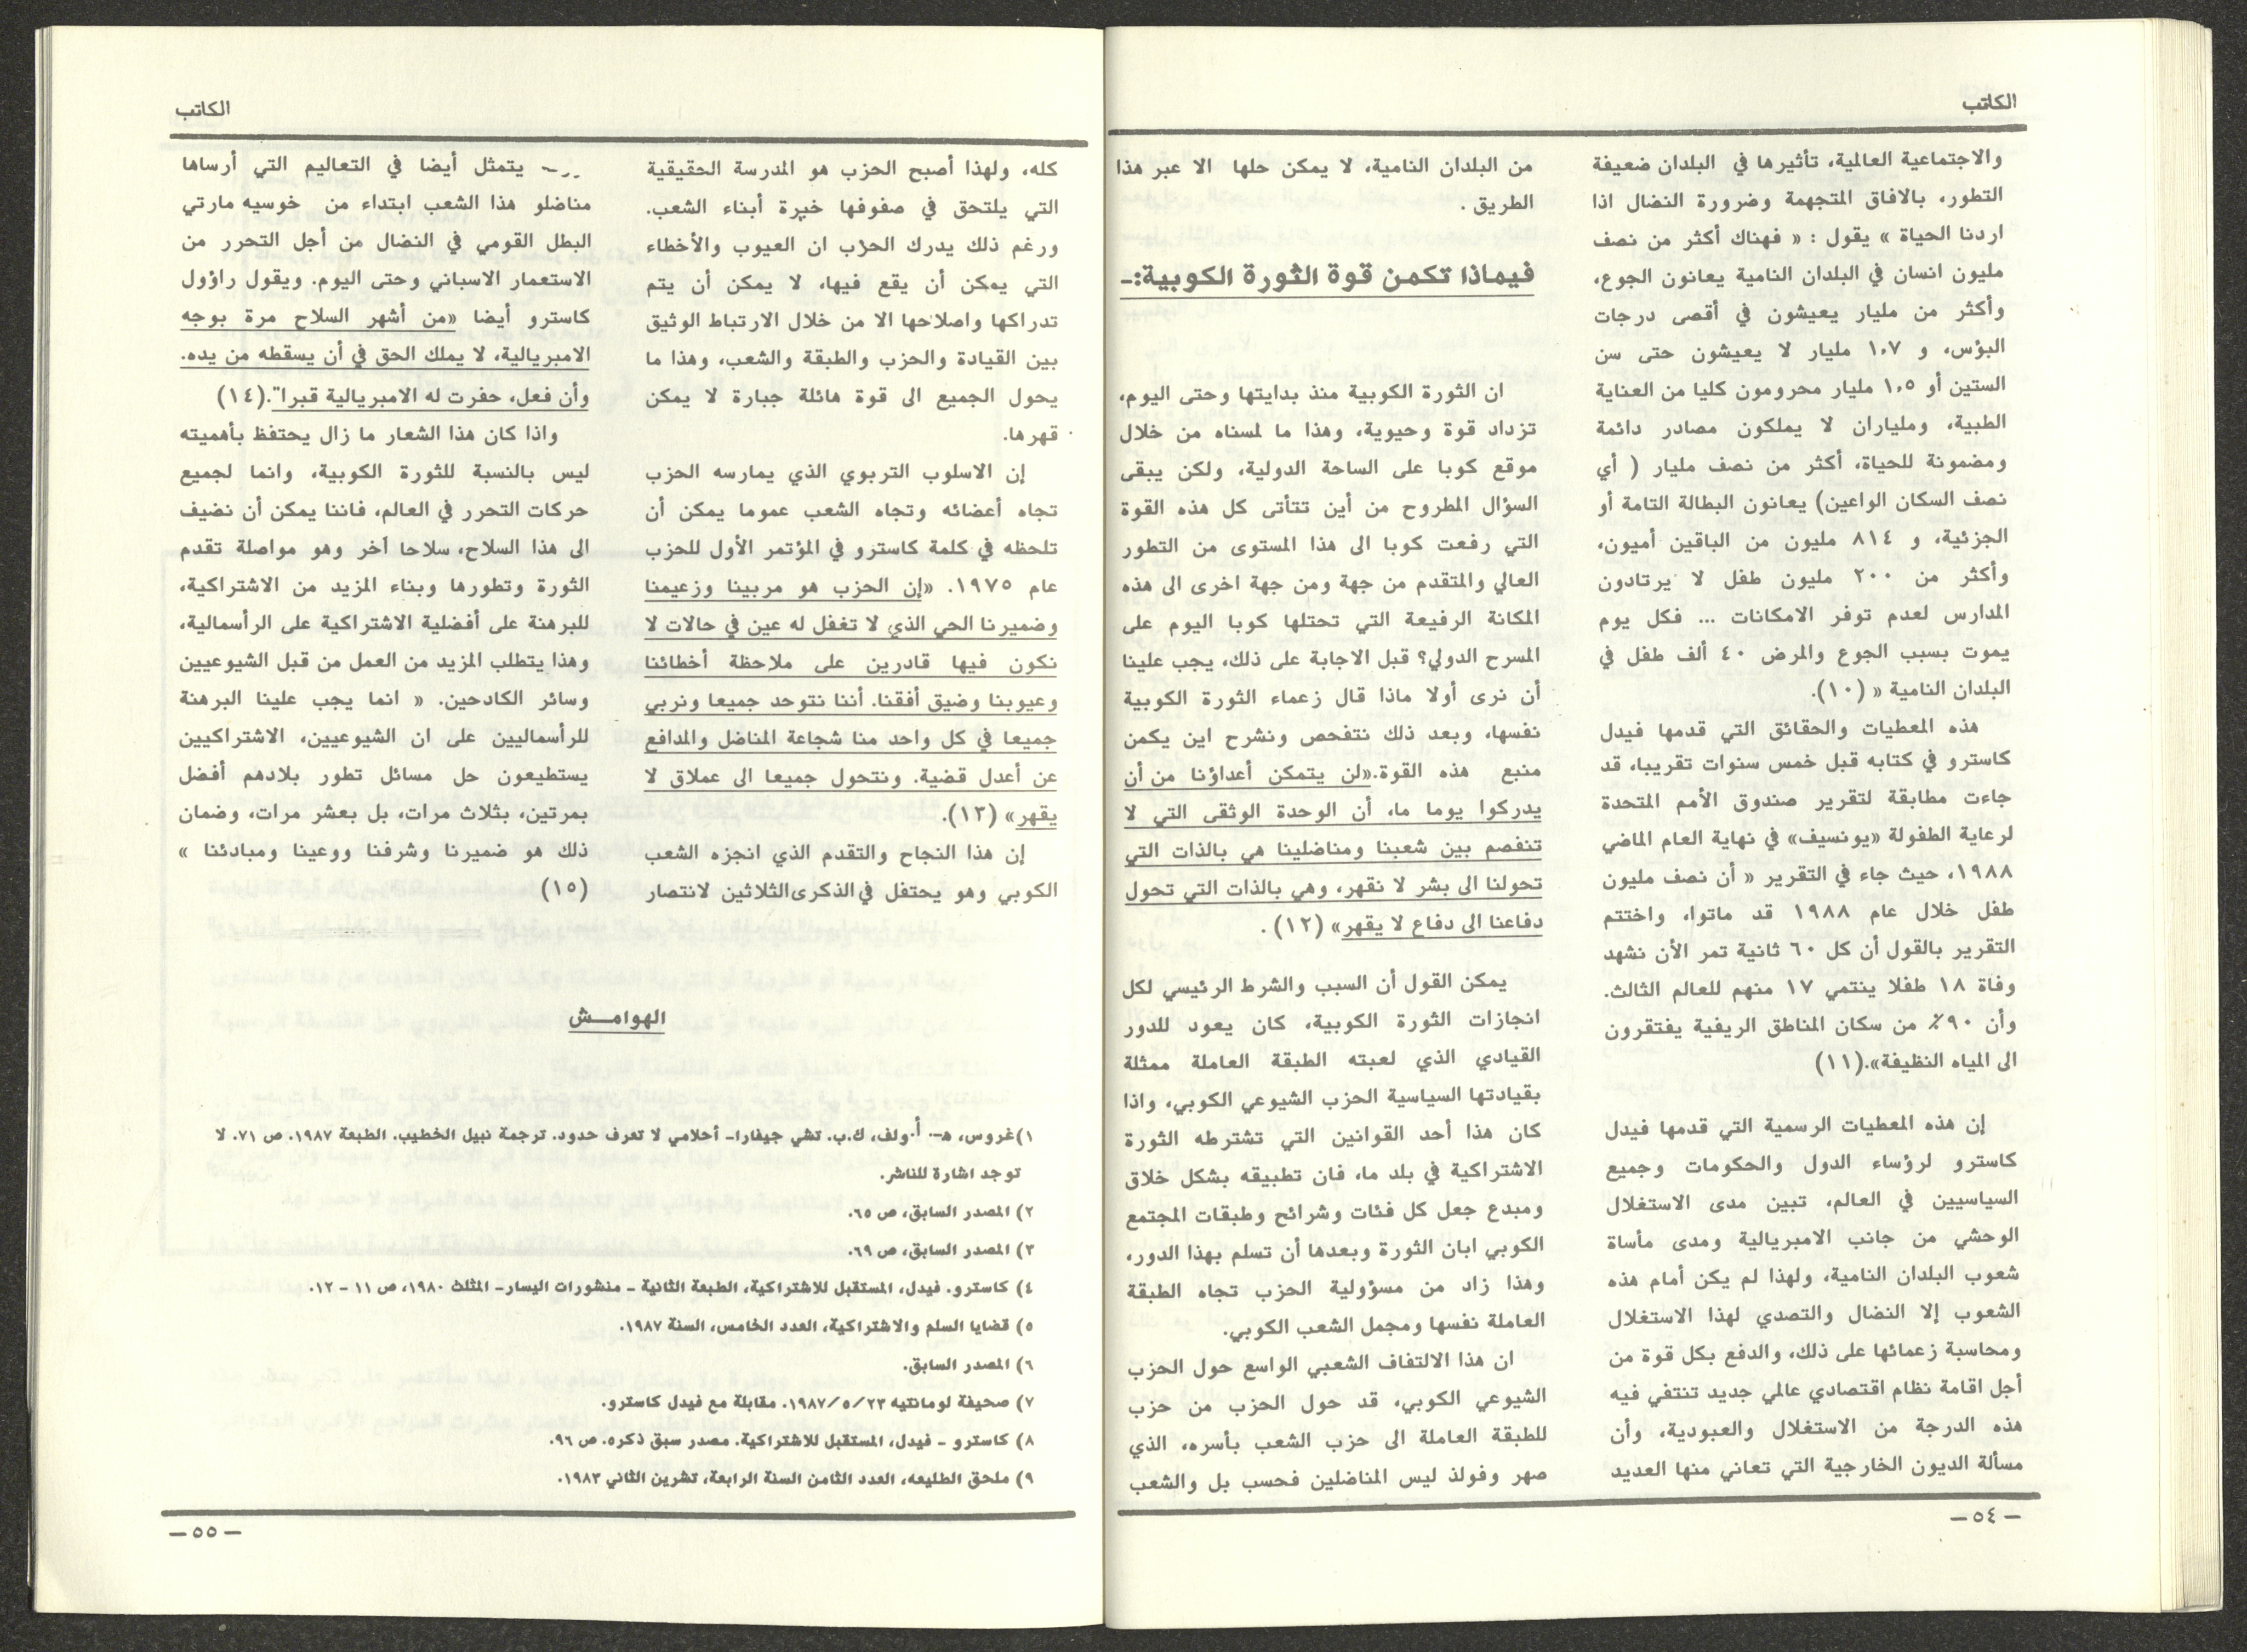 الكاتب
والاجتماعية العالمية، تأثيرها في البلدان ضعيفة
التطور، بالافاق المتجهمة وضرورة النضال اذا
اردنا الحياة » يقول : « فهناك أكثر من نصف
مليون انسان في البلدان النامية يعانون الجوع،
وأكثر من مليار يعيشون في أقصى درجات
البؤس، و ١،٧ مليار لا يعيشون حتى سن
الستين أو ١،٥ مليار محرومون كليا من العناية
الطبية، ومليارات لا يملكون مصادر دائمة
ومضمونة للحياة، أكثر من نصف مليار ( أي
نصف السكان الواعين) يعانون البطالة التامة أو
الجزئية، و ٨١٤ مليون من الباقين أميون،
وأكثر من ٢٠٠ مليون طفل لا يرتادون
المدارس لعدم توفر الامكانات ... فكل يوم
يموت بسبب الجوع والمرض ٤٠ ألف طفل في
البلدان النامية « (١٠).
هذه المعطيات والحقائق التي قدمها فيدل
كاسترو في كتابه قبل خمس سنوات تقريبا، قد
جاءت مطابقة لتقرير صندوق الأمم المتحدة
لرعاية الطفولة «يونسيف» في نهاية العام الماضي
١٩٨٨، حيث جاء في التقرير « أن نصف مليون
طفل خلال عام ١٩٨٨ قد ماتوا، واختتم
التقرير بالقول أن كل ٦٠ ثانية تمر الأن نشهد
وفاة ١٨ طفلا ينتمي ١٧ منهم للعالم الثالث.
وأن ٩٠٪ من سكان المناطق الريفية يفتقرون
الى المياه النظيفة».(١١)
إن هذه المعطيات الرسمية التي قدمها فيدل
كاسترو لرؤساء الدول والحكومات وجميع
السياسيين في العالم، تبين مدى الاستغلال
الوحشي من جانب الامبريالية ومدى مأساة
شعوب البلدان النامية، ولهذا لم يكن أمام هذه
الشعوب إلا النضال والتصدي لهذا الاستغلال
ومحاسبة زعمائها على ذلك، والدفع بكل قوة من
أجل اقامة نظام اقتصادي عالمي جديد تنتفي فيه
هذه الدرجة من الاستغلال والعبودية، وأن
مسألة الديون الخارجية التي تعاني منها العديد
من البلدان النامية، لا يمكن حلها الا عبر هذا
الطريق .
فيماذا تكمن قوة الثورة الكوبية:-
ان الثورة الكوبية منذ بدايتها وحتى اليوم،
تزداد قوة وحيوية، وهذا ما لمسناه من خلال
موقع كوبا على الساحة الدولية، ولكن يبقى
السؤال المطروح من أين تتأتى كل هذه القوة
التي رفعت كوبا الى هذا المستوى من التطور
العالي والمتقدم من جهة ومن جهة اخرى الى هذه
المكانة الرفيعة التي تحتلها كوبا اليوم على
المسرح الدولي؟ قبل الاجابة على ذلك، يجب علينا
أن نرى أولا ماذا قال زعماء الثورة الكوبية
نفسها، وبعد ذلك نتفحص ونشرح اين يكمن
منبع هذه القوة.«لن يتمكن أعداؤنا من أن
يدركوا يوما ما، أن الوحدة الوثقى التي لا
تنفصم بين شعبنا ومناضلينا هي بالذات التي
تحولنا الى بشر لا نقهر، وهي بالذات التي تحول
دفاعنا الى دفاع لا يقهر» (١٢) .
يمكن القول أن السبب والشرط الرئيسي لكل
انجازات الثورة الكوبية، كان يعود للدور
القيادي الذي لعبته الطبقة العاملة ممثلة
بقيادتها السياسية الحزب الشيوعي الكوبي، واذا
كان هذا أحد القوانين التي تشترطه الثورة
الاشتراكية في بلد ما، فان تطبيقه بشكل خلاق
ومبدع جعل كل فئات وشرائح وطبقات المجتمع
الكوبي ابان الثورة وبعدها أن تسلم بهذا الدور،
وهذا زاد من مسؤولية الحزب تجاه الطبقة
العاملة نفسها ومجمل الشعب الكوبي.
ان هذا الالتفاف الشعبي الواسع حول الحزب
الشيوعي الكوبي، قد حول الحزب من حزب
للطبقة العاملة الى حزب الشعب بأسره، الذي
صهر وفولذ ليس المناضلين فحسب بل والشعب
— ٥٤ —
الكاتب
كله، ولهذا أصبح الحزب هو المدرسة الحقيقية
التي يلتحق في صفوفها خيرة أبناء الشعب.
ورغم ذلك يدرك الحزب ان العيوب والأخطاء
التي يمكن أن يقع فيها، لا يمكن أن يتم
تدراكها واصلاحها الا من خلال الارتباط الوثيق
بين القيادة والحزب والطبقة والشعب، وهذا ما
يحول الجميع الى قوة هائلة جبارة لا يمكن
قهرها.
إن الاسلوب التربوي الذي يمارسه الحزب
تجاه أعضائه وتجاه الشعب عموما يمكن أن
تلحظه في كلمة كاسترو في المؤتمر الأول للحزب
عام ١٩٧٥. «إن الحزب هو مربينا وزعيمنا
وضميرنا الحي الذي لا تغفل له عين في حالات لا
نكون فيها قادرين على ملاحظة أخطائنا
وعيوبنا وضيق أفقنا. أننا نتوحد جميعا ونربي
جميعا في كل واحد منا شجاعة المناضل والمدافع
عن أعدل قضية. ونتحول جميعا الى عملاق لا
يقهر» (١٣).
إن هذا النجاح والتقدم الذي انجزه الشعب
الكوبي وهو يحتفل في الذكرى الثلاثين لانتصار
يتمثل أيضا في التعاليم التي أرساها
مناضلو هذا الشعب ابتداء من خوسيه مارتي
البطل القومي في النضال من أجل التحرر من
الاستعمار الاسباني وحتى اليوم. ويقول راؤول
كاسترو أيضا «من أشهر السلاح مرة بوجه
الامبريالية، لا يملك الحق في أن يسقطه من يده.
وأن فعل، حفرت له الامبريالية قبرا".(١٤)
واذا كان هذا الشعار ما زال يحتفظ بأهميته
ليس بالنسبة للثورة الكوبية، وانما لجميع
حركات التحرر في العالم، فاننا يمكن أن نضيف
الى هذا السلاح، سلاحا آخر وهو مواصلة تقدم
الثورة وتطورها وبناء المزيد من الاشتراكية،
للبرهنة على أفضلية الاشتراكية على الرأسمالية،
وهذا يتطلب المزيد من العمل من قبل الشيوعيين
وسائر الكادحين. « انما يجب علينا البرهنة
للرأسماليين على ان الشيوعيين، الاشتراكيين
يستطيعون حل مسائل تطور بلادهم أفضل
بمرتين، بثلاث مرات، بل بعشر مرات، وضمان
ذلك هو ضميرنا وشرفنا ووعينا ومبادئنا »
(١٥)
الهوامـــش
١)غروس، هـ. أ.ولف، ك.ب. تشي جيفارا- أحلامي لا تعرف حدود. ترجمة نبيل الخطيب. الطبعة ١٩٨٧. ص ٧١. لا
توجد اشارة للناشر.
٢) المصدر السابق، ص ٦٥.
٣) المصدر السابق، ص ٦٩.
٤) كاسترو. فيدل، المستقبل للاشتراكية، الطبعة الثانية - منشورات اليسار- المثلث ١٩٨٠، ص ١١ - ١٢.
٥) قضايا السلم والاشتراكية، العدد الخامس، السنة ١٩٨٧.
٦) المصدر السابق.
٧) صحيفة لومانتيه ٢٣/٥/١٩٨٧. مقابلة مع فيدل كاسترو.
٨) كاسترو - فيدل، المستقبل للاشتراكية. مصدر سبق ذكره. ص ٩٦.
٩) ملحق الطليعه، العدد الثامن السنة الرابعة، تشرين الثاني ١٩٨٣.
— ٥٥ —